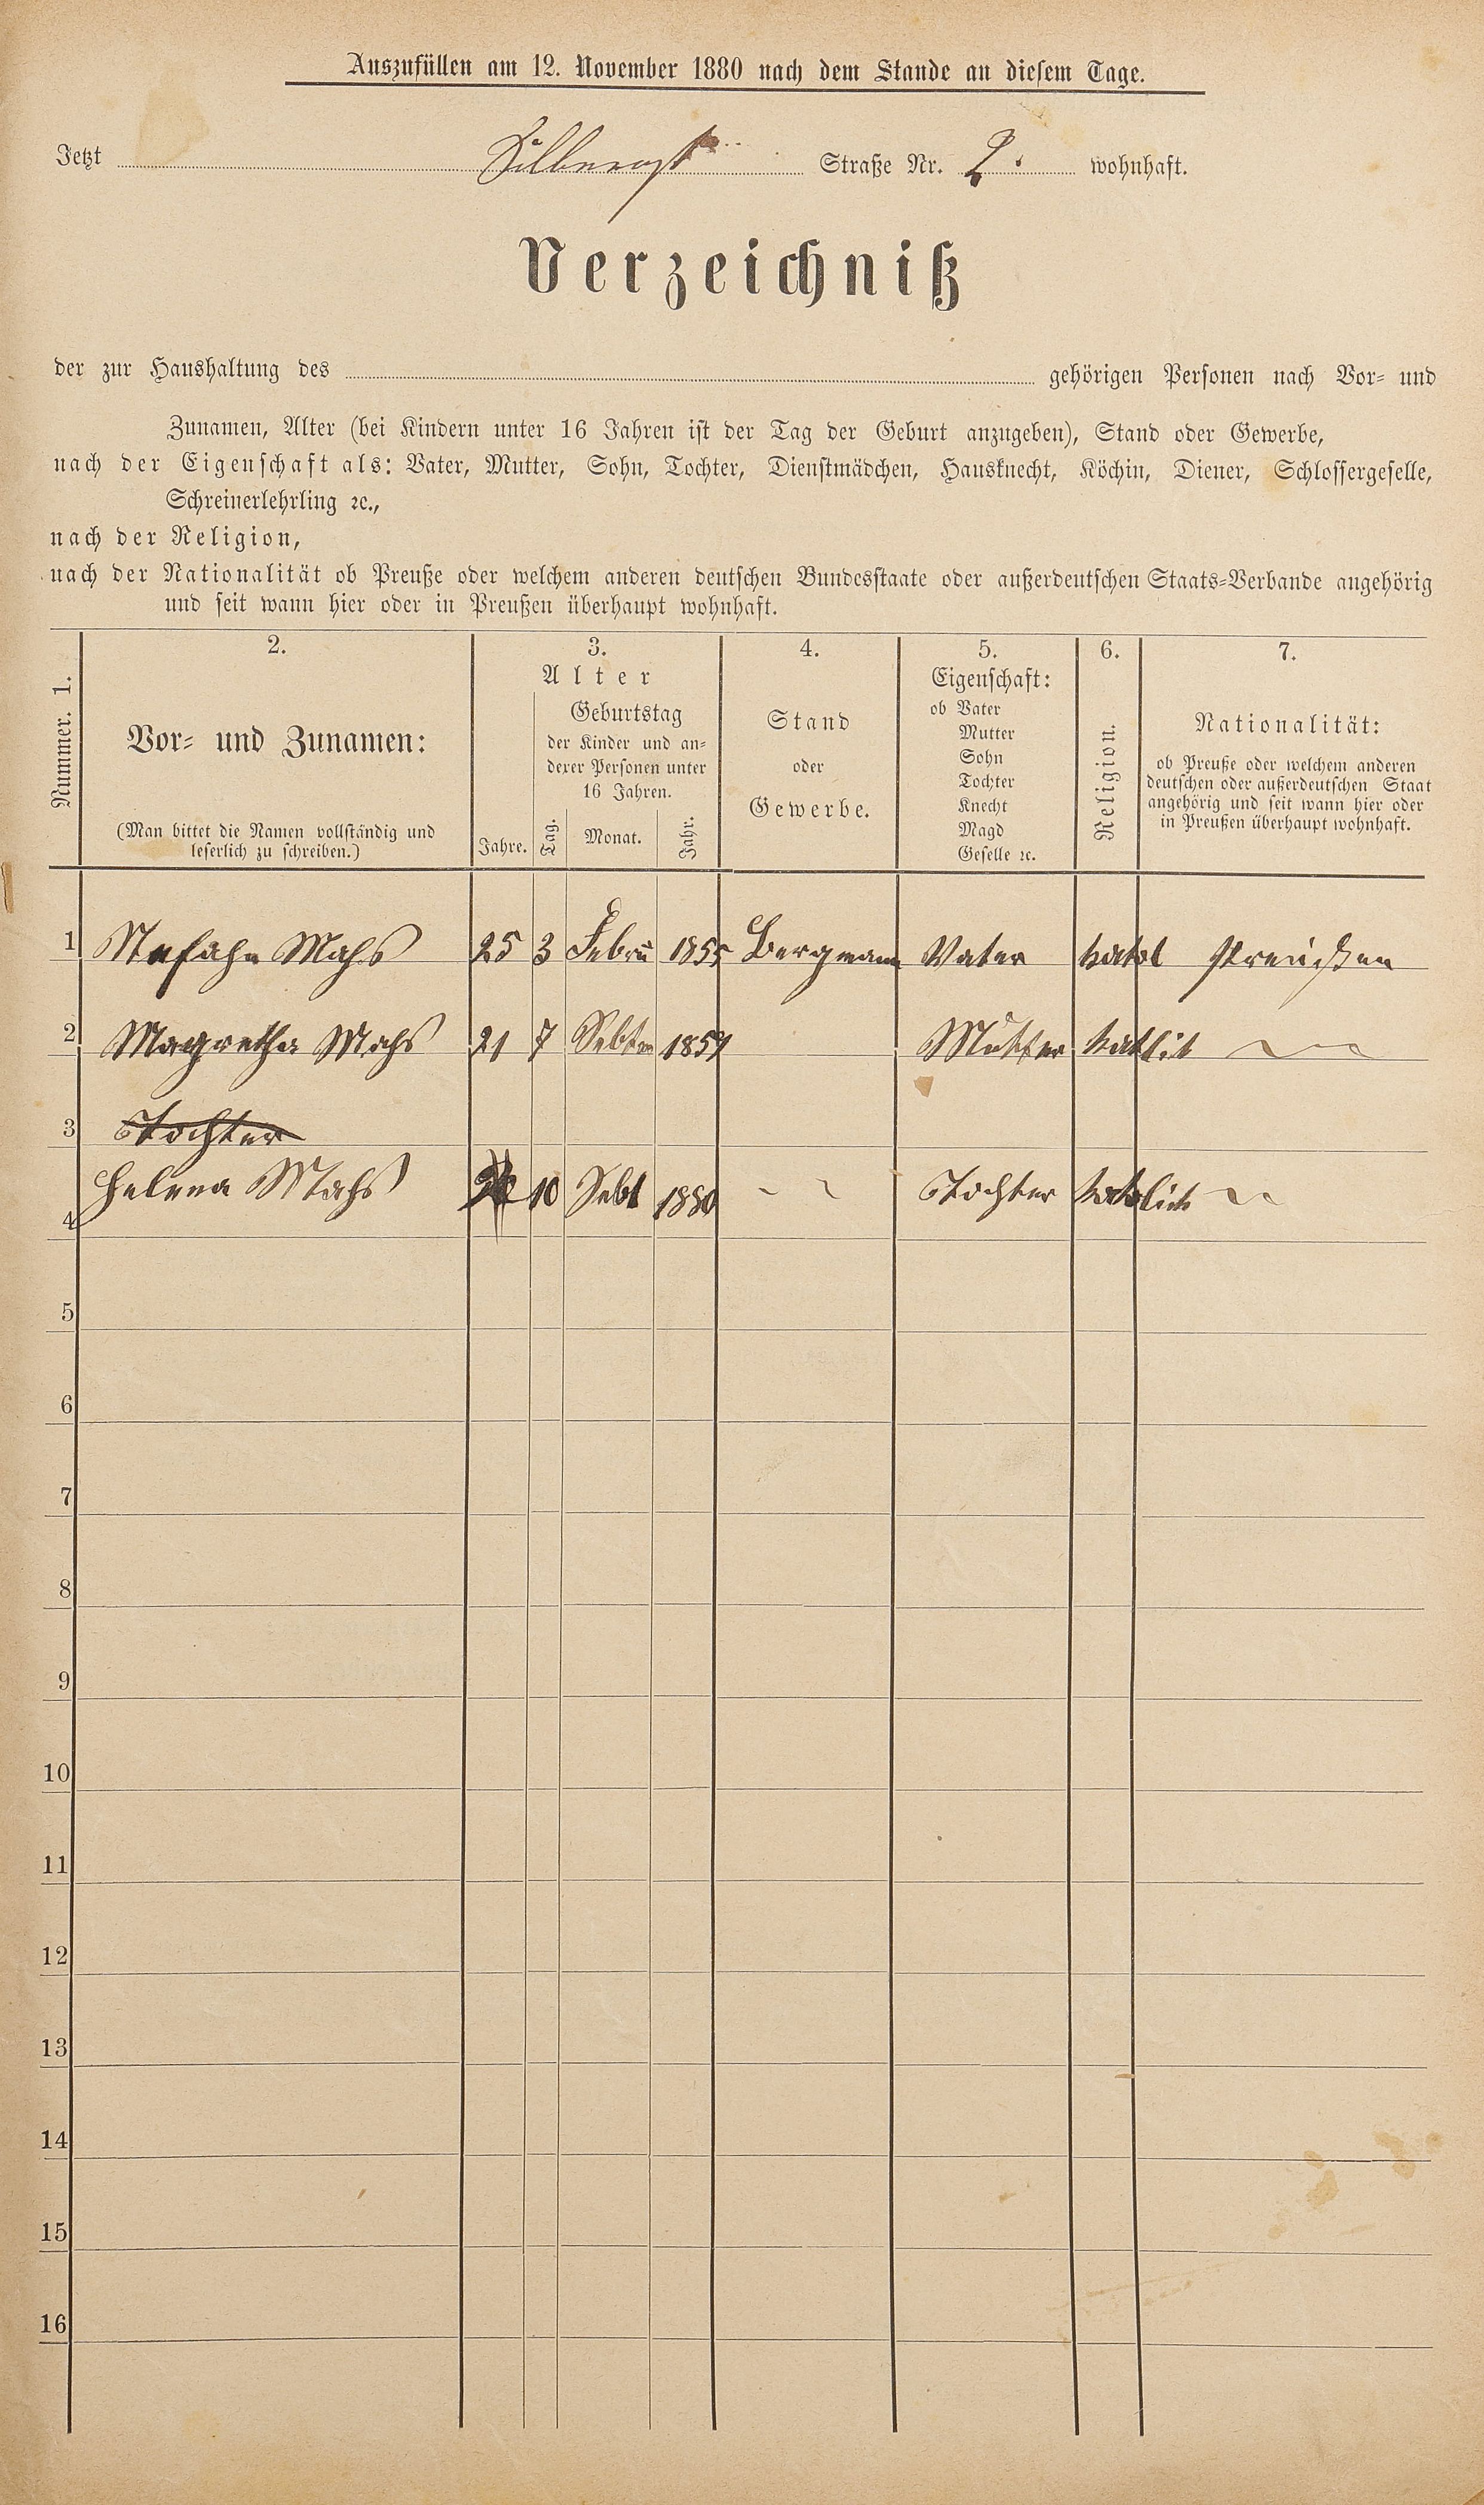 Auszufüllen am 12. November 1880 nach dem Stande an diesem Tage.
Jetzt Straße Nr. 2. wohnhaft.
Verzeichniß
der zur Haushaltung des gehörigen Personen nach Vor- und
Zunamen, Alter (bei Kindern unter 16 Jahren ist der Tag der Geburt anzugeben), Stand oder Gewerbe,
nach der Eigenschaft als: Vater, Mutter, Sohn, Tochter, Dienstmädchen, Hausknecht, Köchin, Diener, Schlossergeselle,
Schreinerlehrling ꝛc.,
nach der Religion,
nach der Nationalität ob Preuße oder welchem anderen deutschen Bundesstaate oder außerdeutschen Staats-Verbande angehörig
und seit wann hier oder in Preußen überhaupt wohnhaft.
Nummer. 1.
2.
Vor- und Zunamen:
(Man bittet die Namen vollständig und
leserlich zu schreiben.)
3.
Alter
Jahre.
Geburtstag
der Kinder und an-
derer Personen unter
16 Jahren.
Tag. Monat. Jahr.
4.
Stand
oder
Gewerbe.
5.
Eigenschaft:
ob Vater
Mutter
Sohn
Tochter
Knecht
Magd
Geselle ꝛc.
6.
Religion.
7.
Nationalität:
ob Preuße oder welchem anderen
deutschen oder außerdeutschen Staat
angehörig und seit wann hier oder
in Preußen überhaupt wohnhaft.
1 Mahs 25 3 Febru 1855 Bergmann Vater katol Preußen
2 Magretha Mahs 21 7 Sebtem 1859 Mutter
3 Tochter
4 Helena Mahs 10 Sebt 1880 Tochter katolich
5
6
7
8
9
10
11
12
13
14
15
16